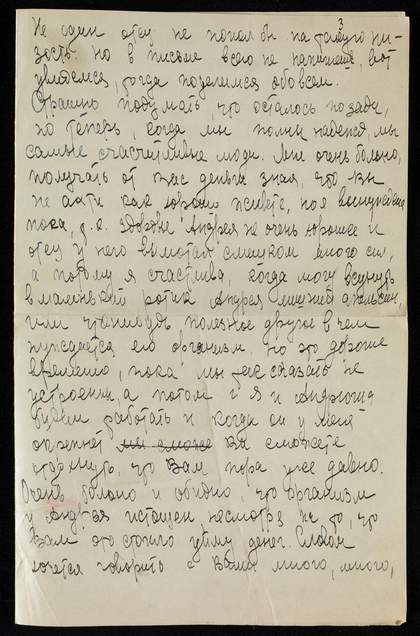 Не один отец не попал бы на такую ни-
зость. Но в письме всего не напишешь, вот
увидемся, тогда поделимся обо всем.
Страшно подумать, что осталось позади,
но теперь, когда мы полны надежд, мы
самые счастливые люди. Мне очень больно,
получать от Вас деньги зная, что Вы
не ахти как хорошо живете, но я вынуждена
пока, т.к. здоровье Андрея не очень хорошее и
отец у него вымотал слишком много сил,
а потому я счастлива, когда могу всунуть
в маленький ротик Андрея лишний апельсин,
или что-нибудь полезное другое в чем
нуждается его организм. Но это дорогие
временно, пока мы так сказать не
устроены, а потом и я и Андрюша
будем работать и когда он у меня
окрепнет мы сможе Вы сможете
отдохнуть, что Вам пора уже давно.
Очень больно и обидно, что организм
у Андрея истощен несмотря на то, что
Вам это стоило уйму денег. Словом
хочется говорить с Вами много, много,